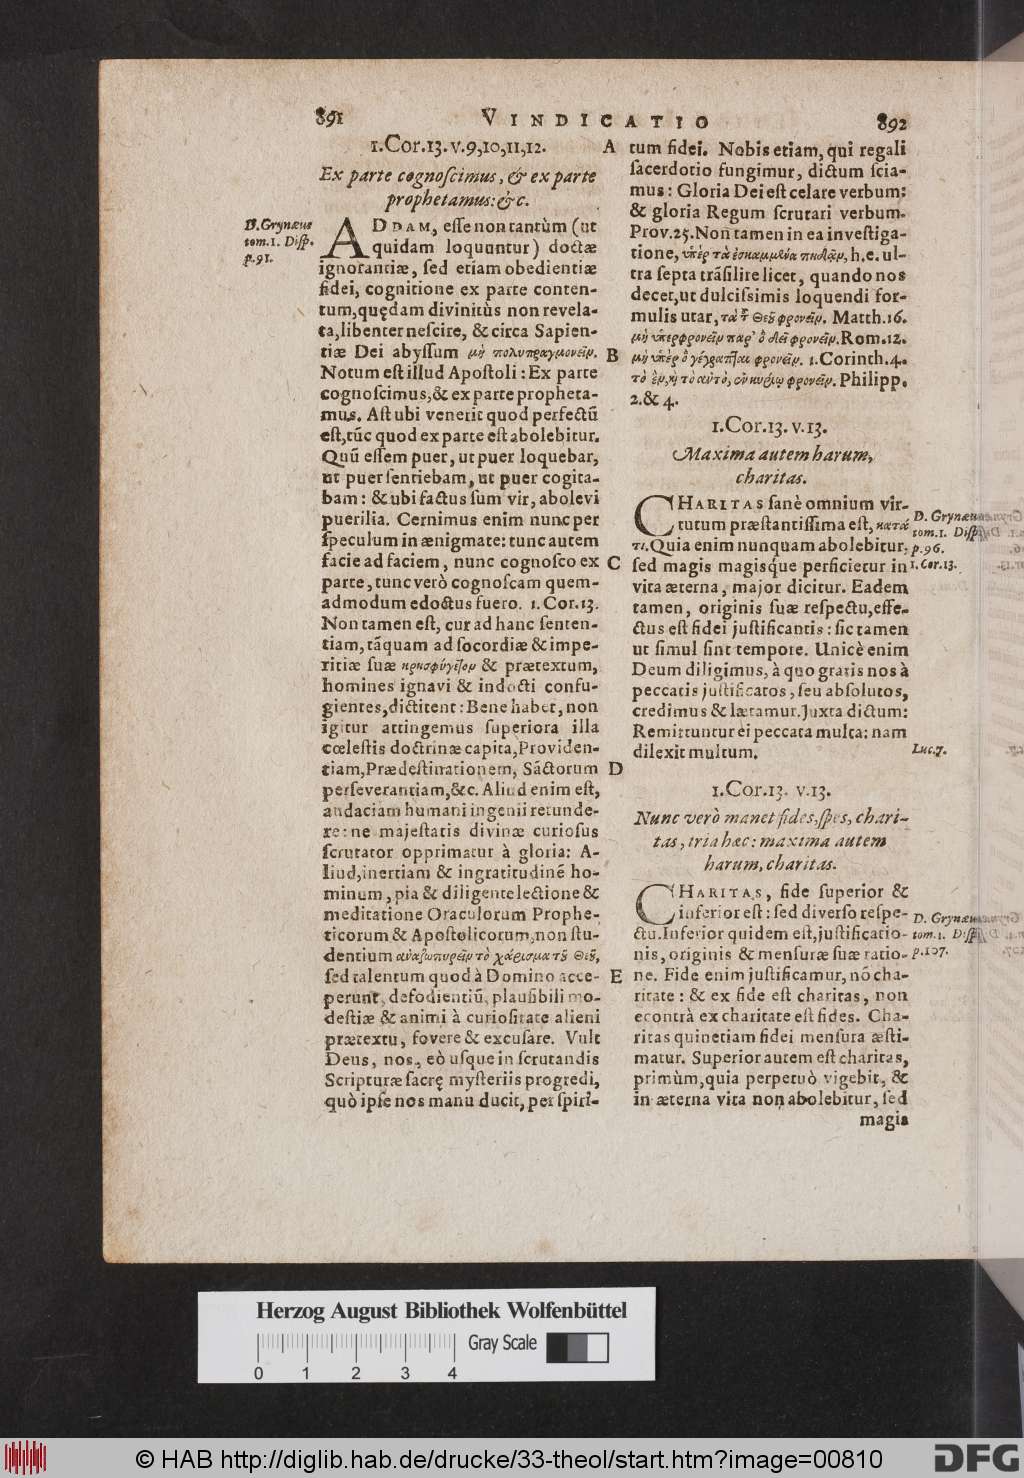 891 VINDICATIO 892
1.Cor.13.v.9,10,11,12.
Ex parte cognoſcimus, & ex parte
prophetamus: &c.
D. Grynæus
tom.1. Diſp.
p.91.
ADDAM, eſſe non tantùm (ut
quidam loquuntur) doctæ
ignorantiæ, ſed etiam obedientiæ
fidei, cognitione ex parte conten-
tum, quędam divinitùs non revela-
ta, libenter neſcire, & circa Sapien-
tiæ Dei abyſſum μὴ πολυπραγμονεῖν.
Notum eſt illud Apoſtoli: Ex parte
cognoſcimus, & ex parte propheta-
mus. Aſt ubi venerit quod perfectū
eſt, tūc quod ex parte eſt abolebitur.
Quū eſſem puer, ut puer loquebar,
ut puer ſentiebam, ut puer cogita-
bam: & ubi factus ſum vir, abolevi
puerilia. Cernimus enim nunc per
ſpeculum in ænigmate: tunc autem
facie ad faciem, nunc cognoſco ex
parte, tunc verò cognoſcam quem-
admodum edoctus fuero. 1.Cor.13.
Non tamen eſt, cur ad hanc ſenten-
tiam, tāquam ad ſocordiæ & impe-
ritiæ ſuæ κρησφύγετον & prætextum,
homines ignavi & indocti confu-
gientes, dictitent: Bene habet, non
igitur attingemus ſuperiora illa
cœleſtis doctrinæ capita, Providen-
tiam, Prædeſtinationem, Sāctorum
perſeverantiam, &c. Aliud enim eſt,
audaciam humani ingenii retunde-
re: ne majeſtatis divinæ curioſus
ſcrutator opprimatur à gloria: A-
liud, inertiam & ingratitudinē ho-
minum, pia & diligente lectione &
meditatione Oraculorum Prophe-
ticorum & Apoſtolicorum, non ſtu-
dentium ἀναζωπυρεῖν τὸ χάρισμα τȣ͂ Θεȣ͂,
ſed talentum quod à Domino acce-
perunt, defodientiū, plauſibili mo-
deſtiæ & animi à curioſitate alieni
prætextu, fovere & excuſare. Vult
Deus, nos, eò uſque in ſcrutandis
Scripturæ ſacrę myſteriis progredi,
quò ipſe nos manu ducit, per ſpiri-
A
B
C
D
E
tum fidei. Nobis etiam, qui regali
ſacerdotio fungimur, dictum ſcia-
mus: Gloria Dei eſt celare verbum:
& gloria Regum ſcrutari verbum.
Prov.25. Non tamen in ea inveſtiga-
tione, ὑπὲρ τὰ ἐσκαμμένα πηδᾷν, h.e. ul-
tra ſepta trāſilire licet, quando nos
decet, ut dulciſsimis loquendi for-
mulis utar, τὰ τȣ͂ Θεȣ͂ φρονεῖν. Matth.16.
μὴ ὑπερφρονεῖν παρ' ὃ δεῖ φρονεῖν. Rom.12.
μὴ ὑπὲρ ὃ γέγραπται φρονεῖν. 1.Corinth.4.
τὸ ἓν, καὶ τὸ αὐτὸ, ἐν κυρίῳ φρονεῖν. Philipp.
2.& 4.
1.Cor.13. v.13.
Maxima autem harum,
charitas.
CHARITAS ſanè omnium vir-
tutum præſtantiſſima eſt, κατά
τι. Quia enim nunquam abolebitur,
ſed magis magisq́ue perficietur in
vita æterna, major dicitur. Eadem
tamen, originis ſuæ reſpectu, effe-
ctus eſt fidei juſtificantis: ſic tamen
ut ſimul ſint tempore. Unicè enim
Deum diligimus, à quo gratis nos à
peccatis juſtificatos, ſeu abſolutos,
credimus & lætamur. Juxta dictum:
Remittuntur ei peccata multa: nam
dilexit multum.
D. Grynæus
tom.1. Diſp.
p.96.
1.Cor.13.
Luc.7.
1.Cor.13. v.13.
Nunc verò manet fides, ſpes, chari-
tas, tria hæc: maxima autem
harum, charitas.
CHARITAS, fide ſuperior &
inferior eſt: ſed diverſo reſpe-
ctu. Inferior quidem eſt, juſtificatio-
nis, originis & menſuræ ſuæ ratio-
ne. Fide enim juſtificamur, nō cha-
ritate: & ex fide eſt charitas, non
econtrà ex charitate eſt fides. Cha-
ritas quinetiam fidei menſura æſti-
matur. Superior autem eſt charitas,
primùm, quia perpetuò vigebit, &
in æterna vita non abolebitur, ſed
magis
D. Grynæus
tom.1. Diſp.
p.107.
Herzog August Bibliothek Wolfenbüttel
0 1 2 3 4
Gray Scale
© HAB http://diglib.hab.de/drucke/33-theol/start.htm?image=00810
DFG